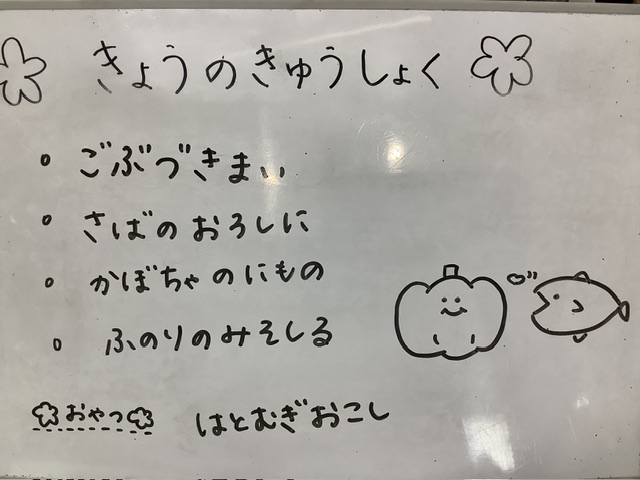 きょうのきゅうしょく
・ごぶづきまい
・さばのおろしに
・かぼちゃのにもの
・ふのりのみそしる
おやつ はとむぎおこし